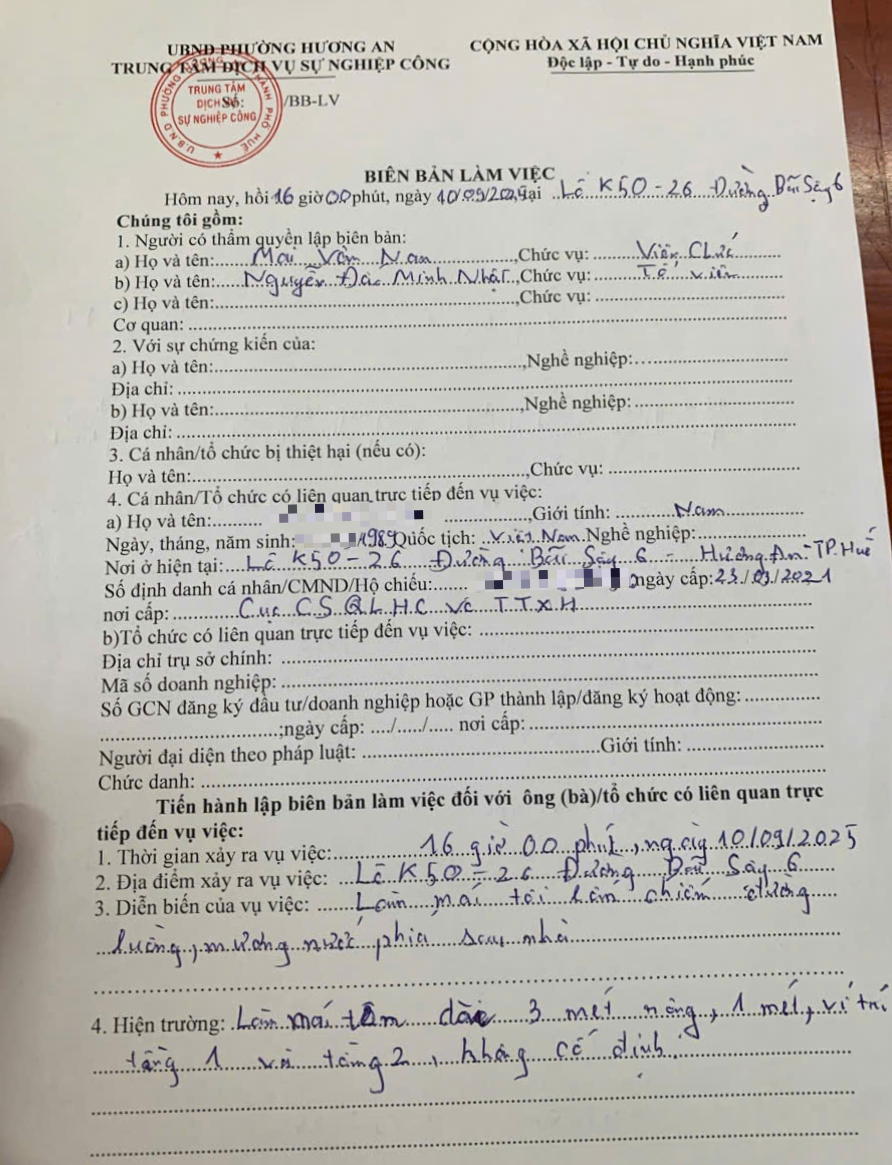 UBND PHƯỜNG HƯƠNG AN
TRUNG TÂM DỊCH VỤ SỰ NGHIỆP CÔNG
CỘNG HÒA XÃ HỘI CHỦ NGHĨA VIỆT NAM
Độc lập - Tự do - Hạnh phúc
TRUNG TÂM
DỊCH VỤ
SỰ NGHIỆP CÔNG
Số: /BB-LV
BIÊN BẢN LÀM VIỆC
Hôm nay, hồi 16 giờ 00 phút, ngày 10/09/2025 tại Lô K50-26 Đường Bầu Sậy 6
Chúng tôi gồm:
1. Người có thẩm quyền lập biên bản:
a) Họ và tên: Mai Văn Nam, Chức vụ: Viên Chức
b) Họ và tên: Nguyễn Đắc Minh Nhật, Chức vụ: Tổ viên
c) Họ và tên:, Chức vụ:
Cơ quan:
2. Với sự chứng kiến của:
a) Họ và tên:, Nghề nghiệp:
Địa chỉ:
b) Họ và tên:, Nghề nghiệp:
Địa chỉ:
3. Cá nhân/tổ chức bị thiệt hại (nếu có):
Họ và tên:, Chức vụ:
4. Cá nhân/Tổ chức có liên quan trực tiếp đến vụ việc:
a) Họ và tên:, Giới tính: Nam
Ngày, tháng, năm sinh: 1989 Quốc tịch: Việt Nam Nghề nghiệp:
Nơi ở hiện tại: Lô K50-26 Đường Bầu Sậy 6 - Hương An - TP. Huế
Số định danh cá nhân/CMND/Hộ chiếu: ngày cấp: 23/03/2021
nơi cấp: Cục CS QLHC về TTXH
b)Tổ chức có liên quan trực tiếp đến vụ việc:
Địa chỉ trụ sở chính:
Mã số doanh nghiệp:
Số GCN đăng ký đầu tư/doanh nghiệp hoặc GP thành lập/đăng ký hoạt động:
;ngày cấp: ..../...../..... nơi cấp:
Người đại diện theo pháp luật: Giới tính:
Chức danh:
Tiến hành lập biên bản làm việc đối với ông (bà)/tổ chức có liên quan trực
tiếp đến vụ việc:
1. Thời gian xảy ra vụ việc: 16 giờ 00 phút, ngày 10/09/2025
2. Địa điểm xảy ra vụ việc: Lô K50-26 Đường Bầu Sậy 6
3. Diễn biến của vụ việc: Làm mái tôn lấn chiếm đường
luồng, mương nước phía sau nhà
4. Hiện trường: Làm mái tôn dài 3 mét rộng, 1 mét, vị trí
tầng 1 và tầng 2, không cố định.